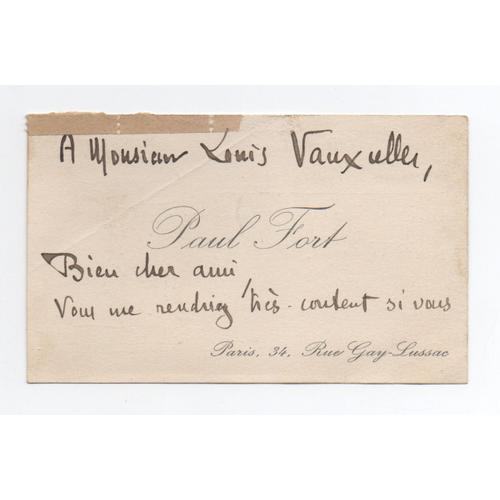 A Monsieur Louis Vauxcelles,
Paul Fort
Bien cher ami,
Vous me rendriez très-content si vous
Paris, 34, Rue Gay-Lussac